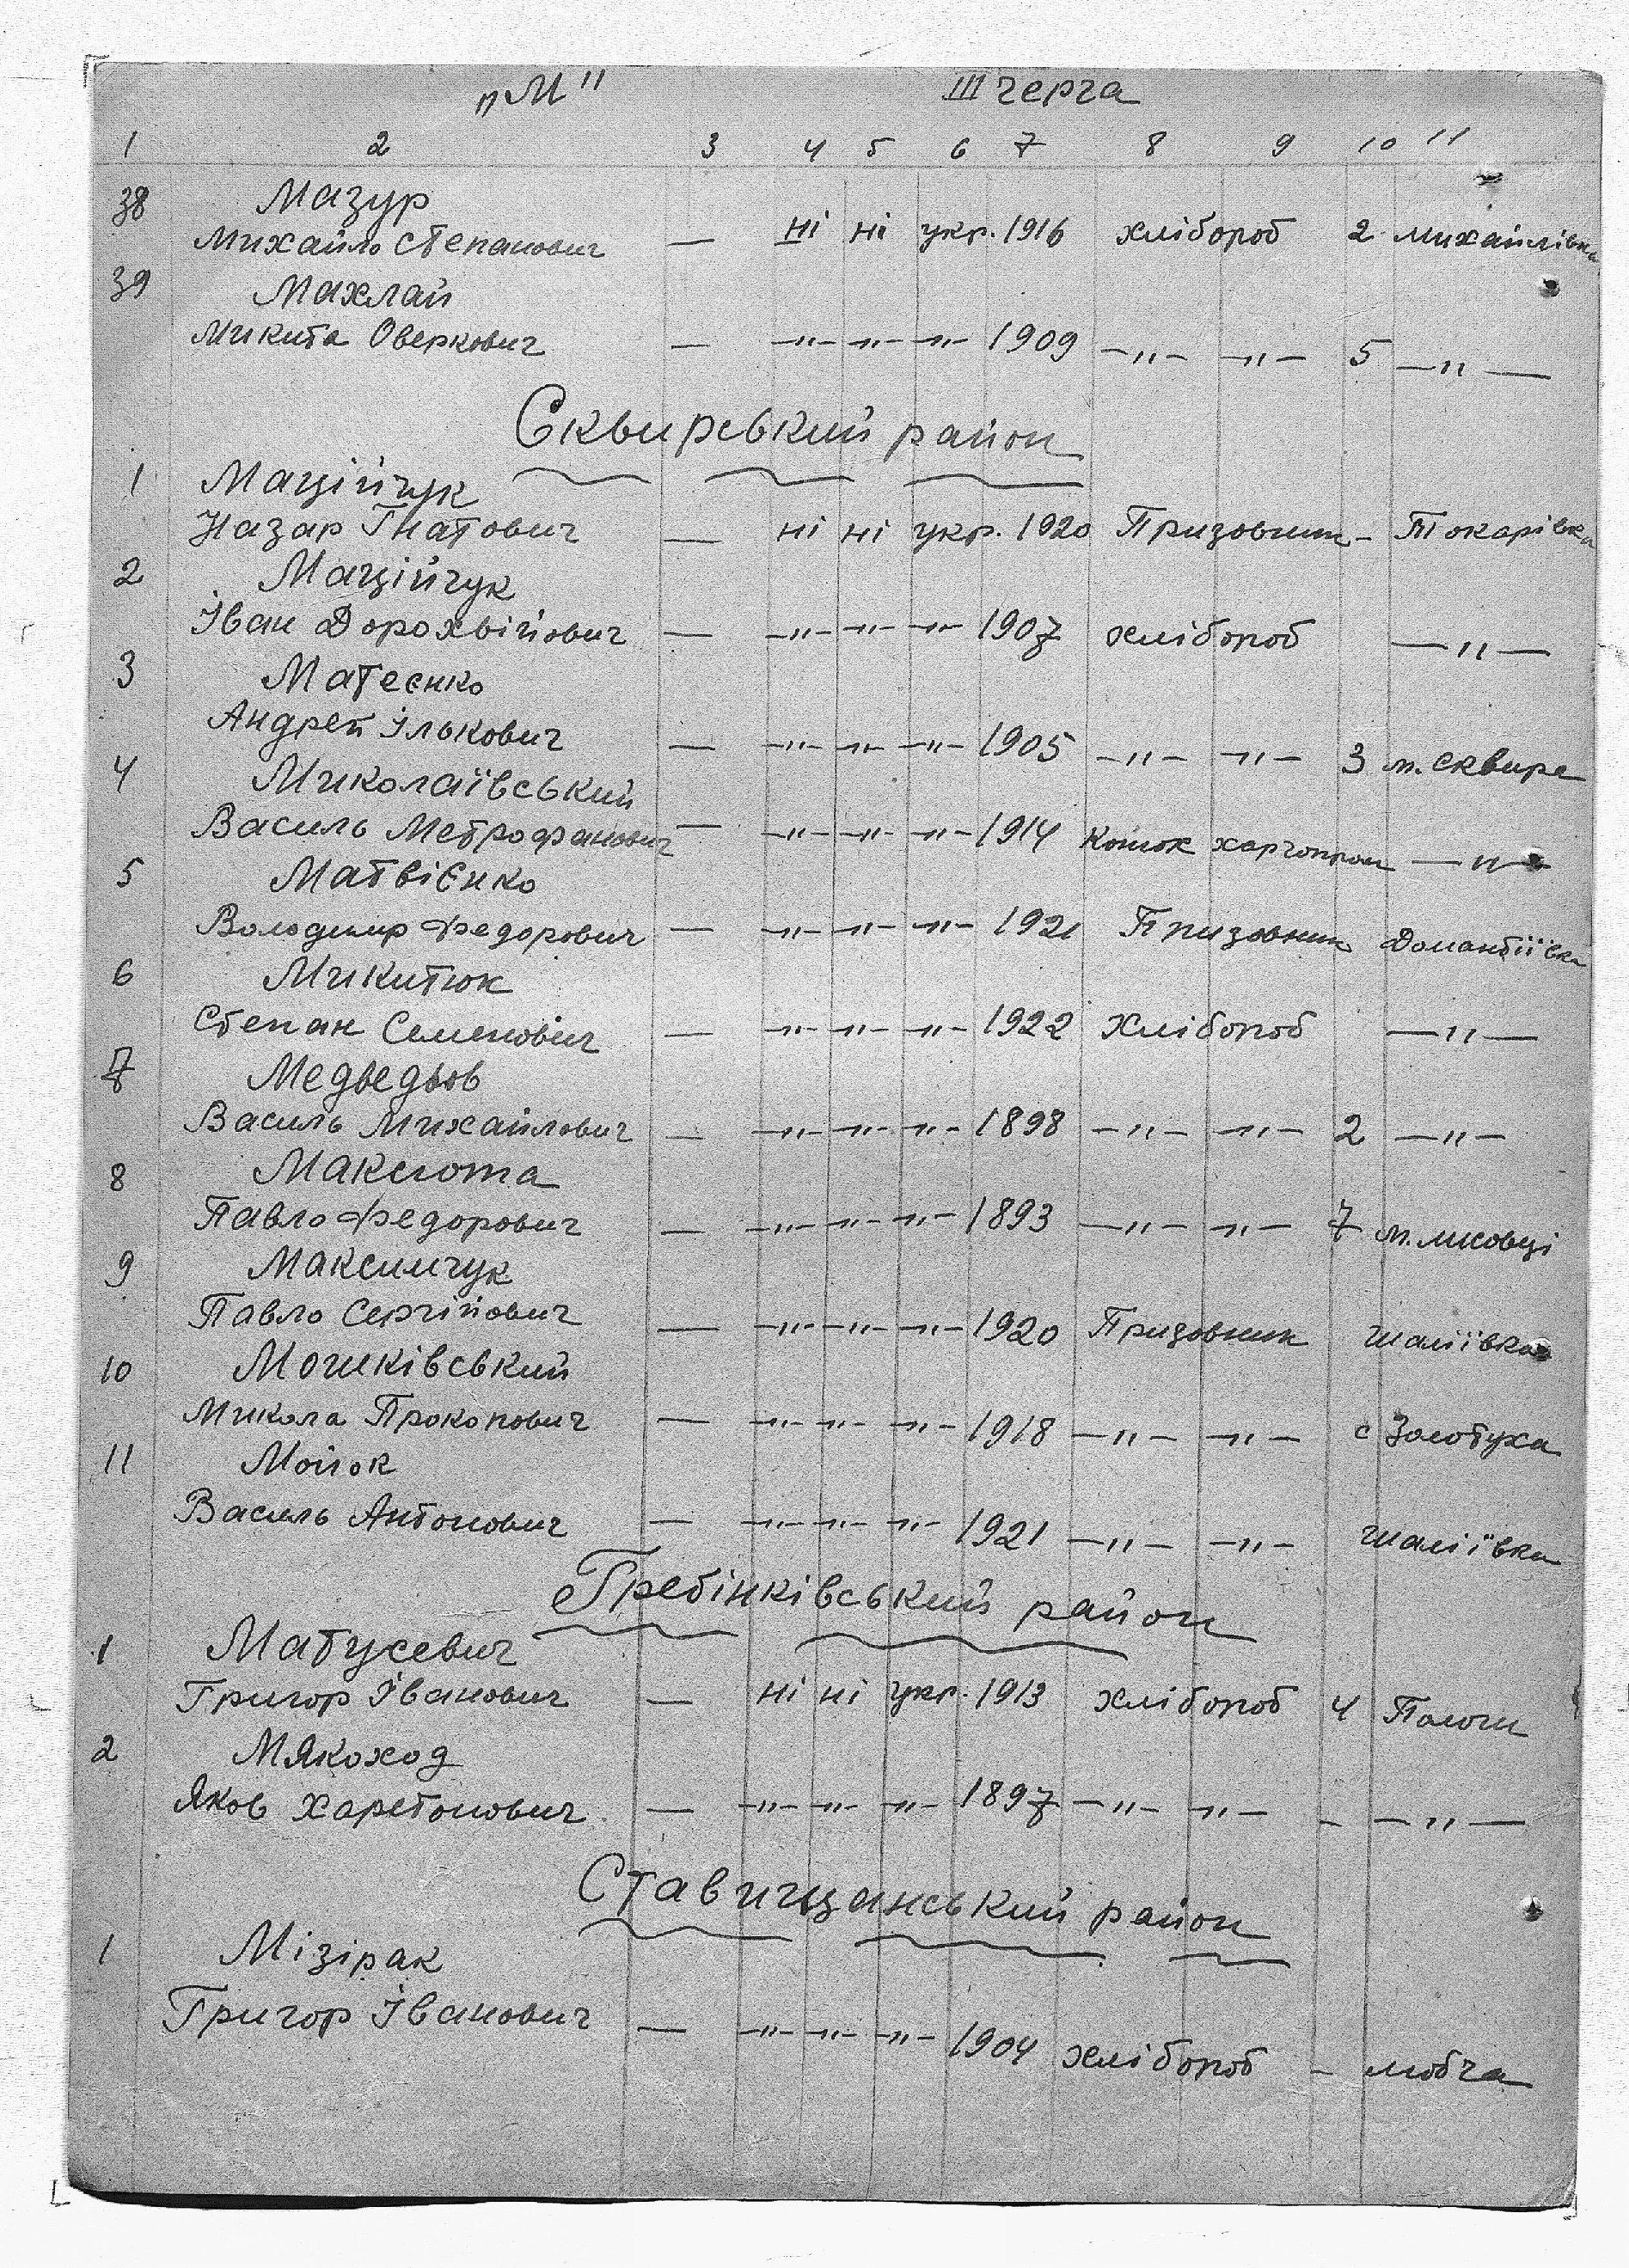 „М" III черга
1 2 3 4 5 6 7 8 9 10 11
38 Мазур
Михайло Степанович — ні ні укр. 1916 хлібороб 2 Михайлівка
39 Махлай
Микита Оверкович — —"— —"— —"— 1909 —"— —"— 5 —"—
Сквирський район
1 Маційчук
Назар Гнатович — ні ні укр. 1920 Призовник - Токарівка
2 Маційчук
Іван Дорохвійович — —"— —"— —"— 1907 хлібороб —"—
3 Матеєнко
Андрей Ількович — —"— —"— —"— 1905 —"— —"— 3 м. Сквира
4 Миколаївський
Василь Метрофанович — —"— —"— —"— 1914 —"—
5 Матвієнко
Володимир Федорович — —"— —"— —"— 1921 Призовник Домантіївка
6 Микитюк
Степан Семенович — —"— —"— —"— 1922 Хлібороб —"—
7 Медведьов
Василь Михайлович — —"— —"— —"— 1898 —"— —"— 2 —"—
8
Павло Федорович — —"— —"— —"— 1893 —"— —"— 7
9 Максимчук
Павло Сергійович — —"— —"— —"— 1920 Призовник Шаліївка
10 Мошківський
Микола Прокопович — —"— —"— —"— 1918 —"— —"— с Золотуха
11 Мойок
Василь Антонович — —"— —"— —"— 1921 —"— —"— Шаліївка
Гребінківський район
1 Матусевич
Григор Іванович — ні ні укр. 1913 хлібороб 4
2 Мякоход
Яков Харетонович — —"— —"— —"— 1897 —"— —"— - —"—
Ставищанський район
1 Мізірак
Григор Іванович — —"— —"— —"— 1904 хлібороб -